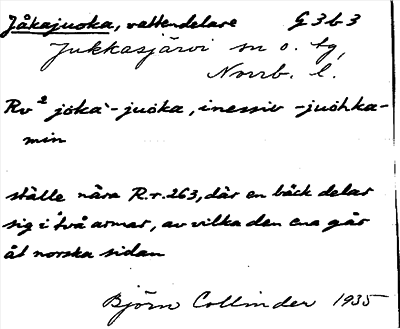 Jåkajuoka, vattendelare G 3 b 3
Jukkasjärvi sn o. tg,
Norrb. l.
Rv² jōka`-juoka, inessiv -juohka-
min
ställe nära R.r. 263, där en bäck delar
sig i två armar, av vilka den ena går
åt norska sidan
Björn Collinder 1935